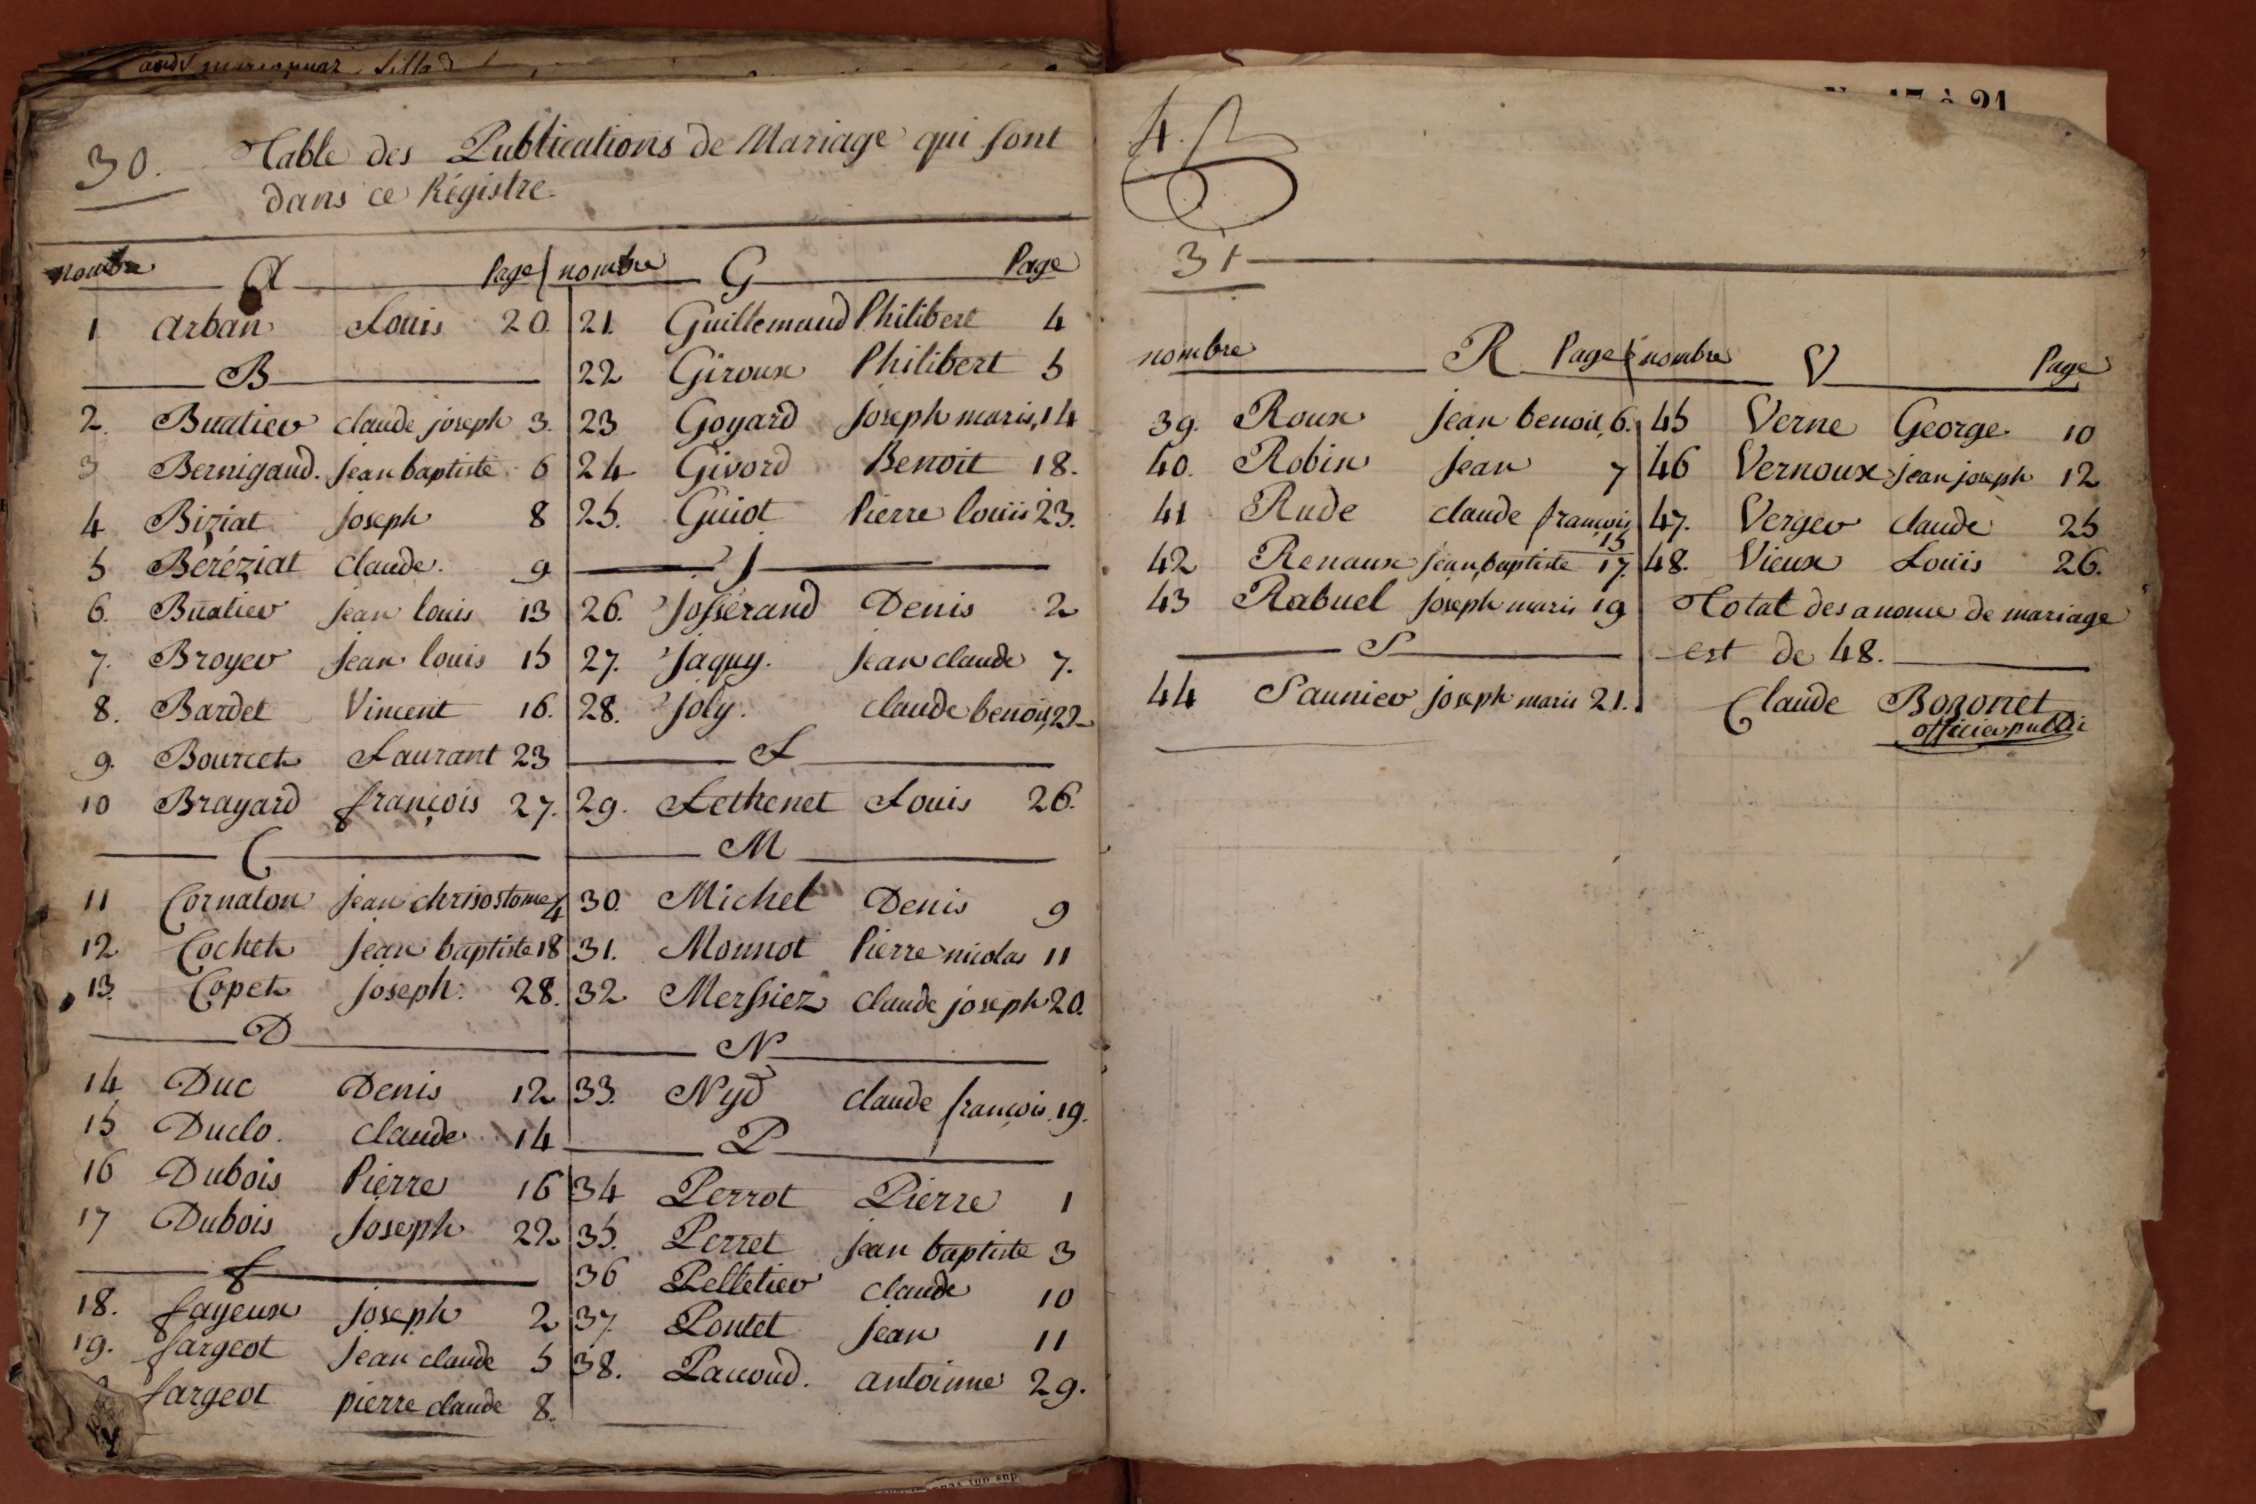 30. Table des Publications de Mariage qui sont
dans ce Régistre.
nombre A Page
1 Arban Louis 20
B
2. Buatier claude joseph 3.
3 Bernigaud. jean baptiste 6
4 Biziat joseph 8
5 Béréziat claude. 9
6. Buatier jean louis 13
7. Broyer jean louis 15
8. Bardet Vincent 16.
9. Bourcet Laurant 23
10 Brayard françois 27.
C
11 Cornaton jean chrisostome 4
12 Cochet jean baptiste 18
13. Copet joseph. 28.
D
14 Duc Denis 12
15 Duclo. claude 14
16 Dubois Pierre 16
17 Dubois joseph 22
f
18. fayeux joseph 2
19. fargeot jean claude 5
fargeot pierre claude 8.
nombre G Page
21. Guillemaud Philibert 4
22 Giroux Philibert 5
23 Goyard joseph marie, 14
24 Givord Benoit 18.
25. Guiot Pierre louis 23.
J
26. Josserand Denis 2
27. Jaquy. jean claude 7.
28. Joly. claude benoit, 22
L
29. Lethenet Louis 26.
M
30. Michel Denis 9
31. Monnot Pierre nicolas 11
32 Messiez claude joseph 20.
N
33. Nyd claude françois. 19.
P
34 Perrot Pierre 1
35. Perret jean baptiste 3
36 Pelletier claude 10
37. Pontet jean 11
38. Pauoud. antoinne 29.
4.
31
nombre R Page
39. Roux jean benoit, 6.
40. Robin jean 7
41 Rude claude françois
15
42 Renaux jean, baptiste 17.
43 Rabuel joseph marie 19
S
44 Saunier joseph marie 21.
nombre V Page
45 Verne George 10
46 Vernoux jean joseph 12
47. Verger claude 25
48. Vieux Louis 26.
Total des anonce de mariage
est de 48.
Claude Bozonet
officier public
17 à 21